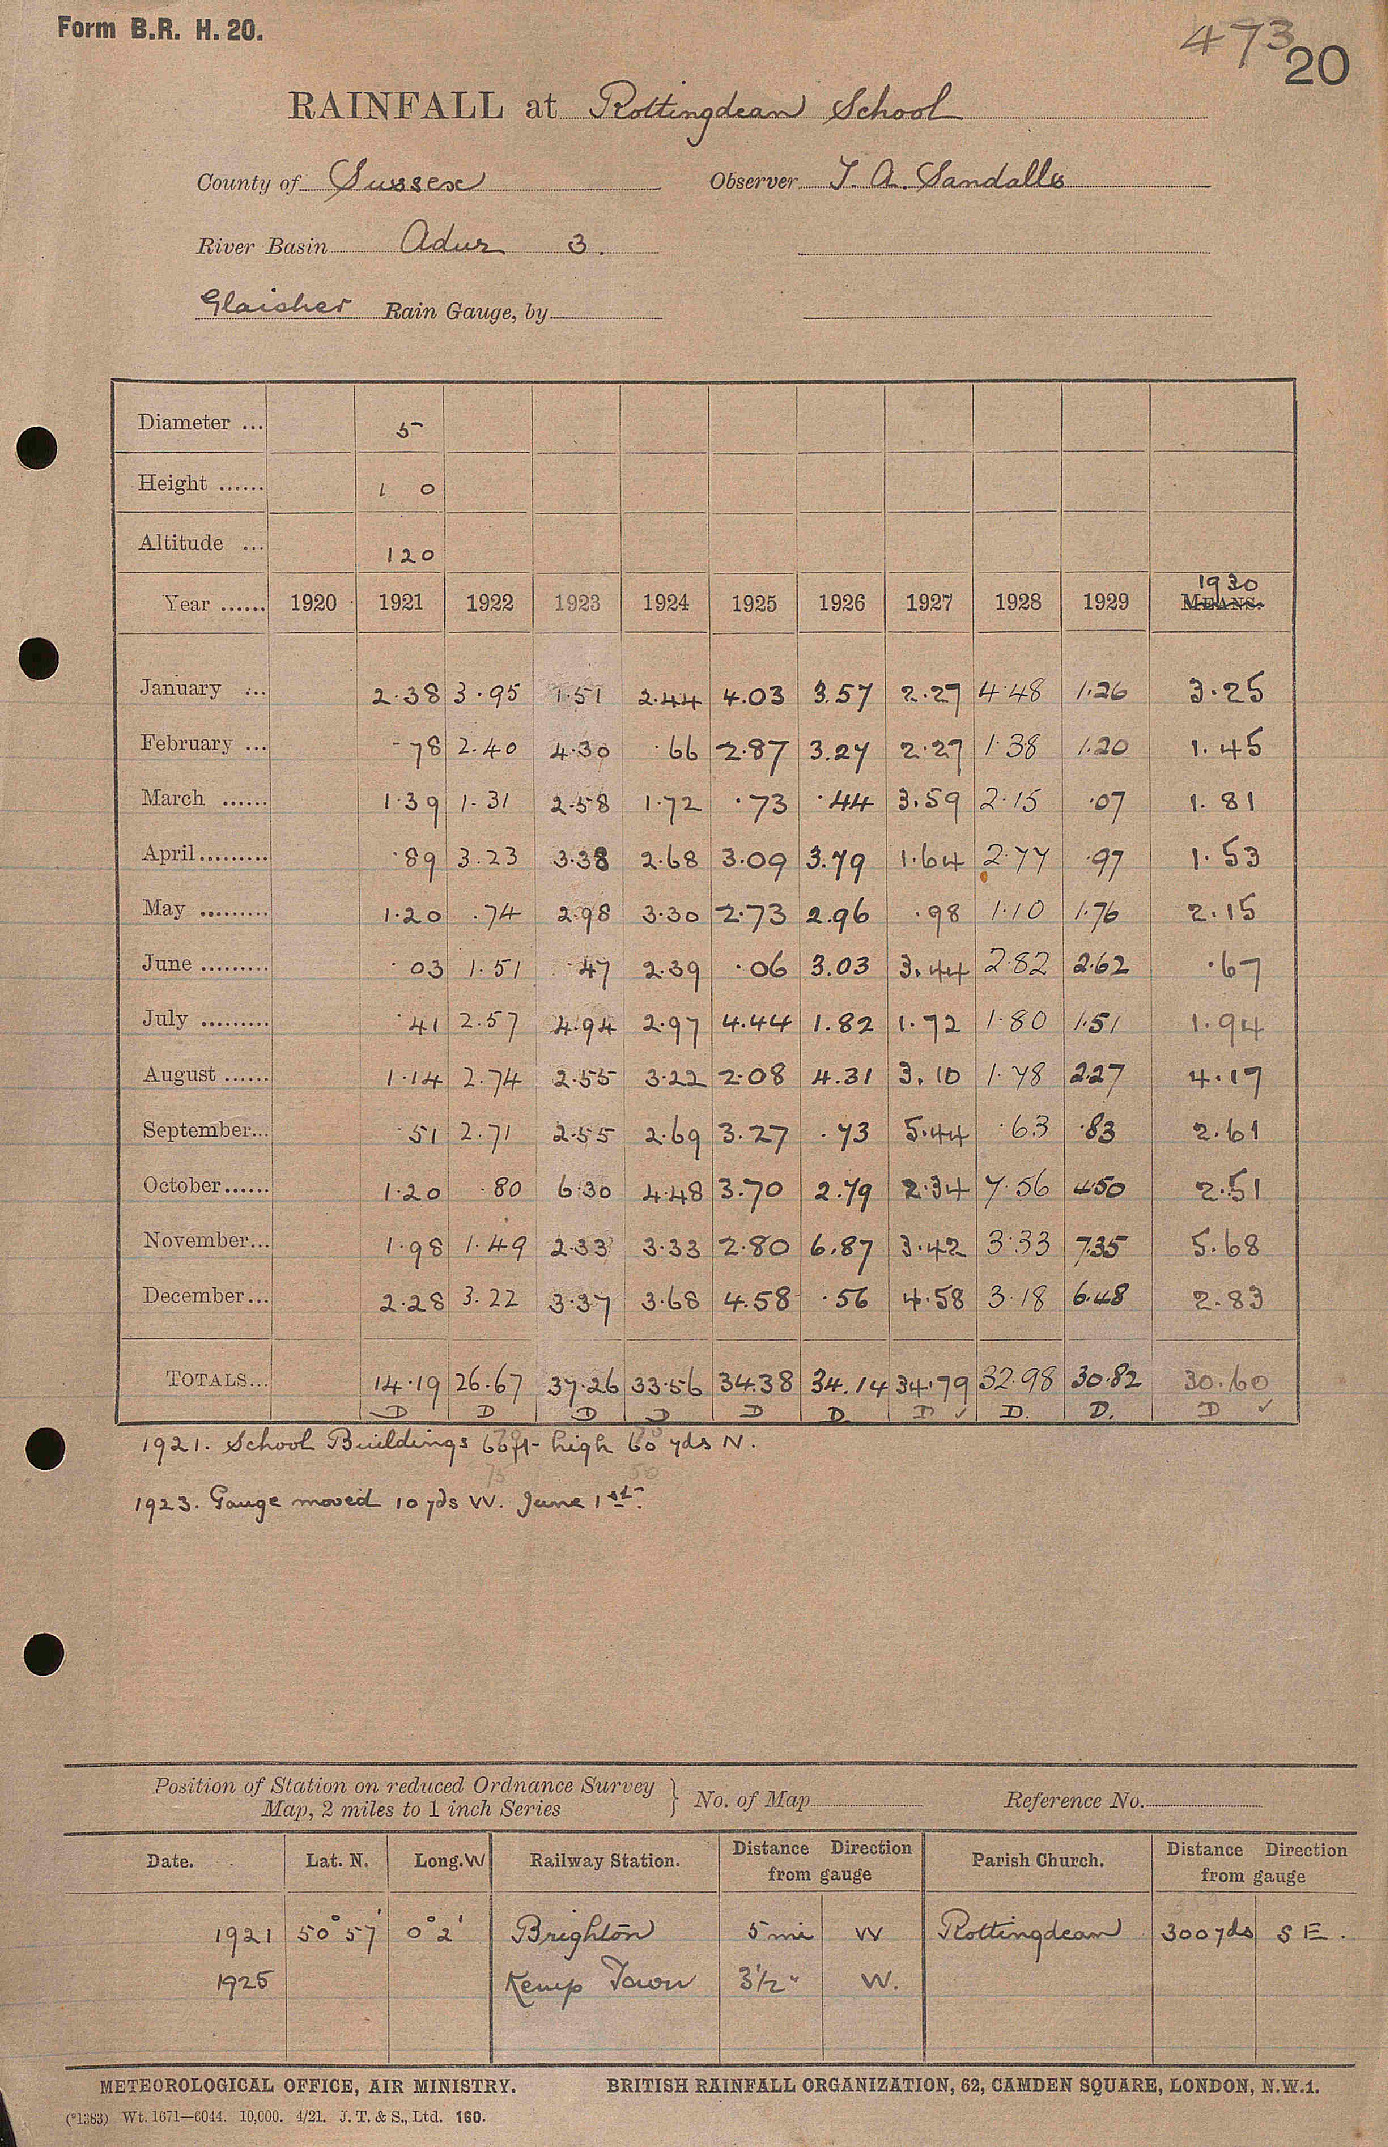 Form B.R. H. 20.
473
20
RAINFALL at Rottingdean School
County of Sussex Observer J. A. Sandalls
River Basin Adur 3.
Glaisher Rain Gauge, by
Diameter ... 5
Height ...... 1 0
Altitude ... 120
1930
Year ...... 1920 1921 1922 1923 1924 1925 1926 1927 1928 1929 MEANS.
January ... 2.38 3.95 1.51 2.44 4.03 3.57 2.27 4.48 1.26 3.25
February ... .78 2.40 4.30 .66 2.87 3.27 2.27 1.38 1.20 1.45
March ...... 1.39 1.31 2.58 1.72 .73 .44 3.59 2.15 .07 1.81
April ......... .89 3.23 3.38 2.68 3.09 3.79 1.64 2.77 .97 1.53
May ......... 1.20 .74 2.98 3.30 2.73 2.96 .98 1.10 1.76 2.15
June ......... .03 1.51 .47 2.39 .06 3.03 3.44 2.82 2.62 .67
July ......... .41 2.57 4.94 2.97 4.44 1.82 1.72 1.80 1.51 1.94
August ...... 1.14 2.74 2.55 3.22 2.08 4.31 3.10 1.78 2.27 4.17
September... .51 2.71 2.55 2.69 3.27 .73 5.44 .63 .83 2.61
October...... 1.20 .80 6.30 4.48 3.70 2.79 2.34 7.56 4.50 2.51
November... 1.98 1.49 2.33 3.33 2.80 6.87 3.42 3.33 7.35 5.68
December... 2.28 3.22 3.37 3.68 4.58 .56 4.58 3.18 6.48 2.83
TOTALS... 14.19 26.67 37.26 33.56 34.38 34.14 34.79 32.98 30.82 30.60
D D D D D D. D ✓ D. D. D ✓
1921. School Buildings 60ft high 60 yds N.
75 50
1923. Gauge moved 10 yds W. June 1st.
Position of Station on reduced Ordnance Survey
Map, 2 miles to 1 inch Series } No. of Map Reference No.
Date. Lat. N. Long. W Railway Station. Distance Direction from gauge Parish Church. Distance Direction from gauge
1921 50° 57' 0° 2' Brighton 5 mi W Rottingdean 300 yds S E.
1925 Kemp Town 3½ " W.
METEOROLOGICAL OFFICE, AIR MINISTRY. BRITISH RAINFALL ORGANIZATION, 62, CAMDEN SQUARE, LONDON, N.W.1.
(*1383) Wt. 1671—6044. 10,000. 4/21. J. T. & S., Ltd. 160.